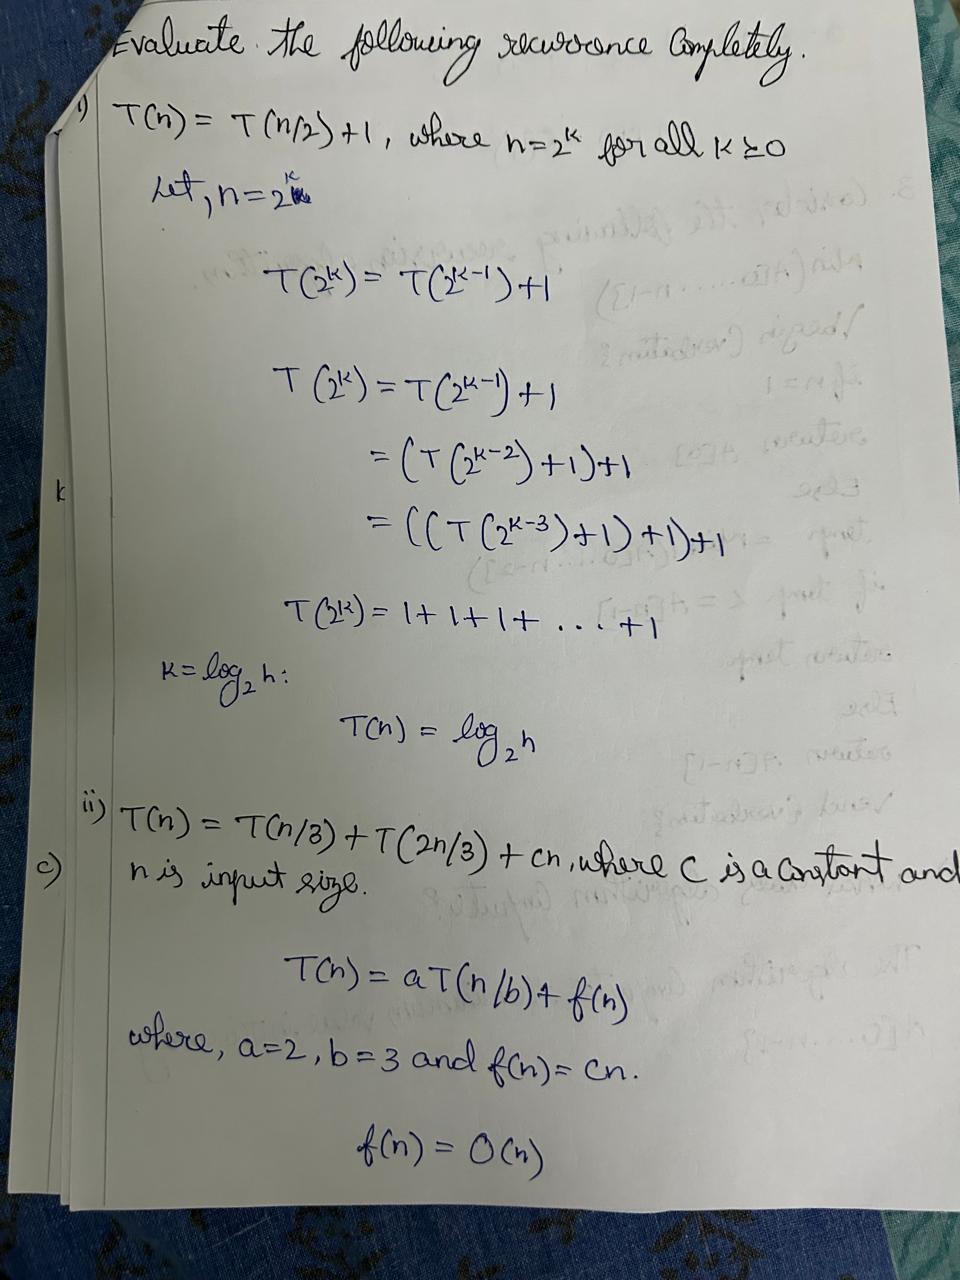 Evaluate the following recurrence Completely.
i) T(n) = T(n/2) +1, where n=2^k for all k ≥0
Let, n=2^k
T(2^k) = T(2^k-1) +1
T(2^k) = T(2^k-1) +1
= (T(2^k-2) +1)+1
k
= ((T(2^k-3)+1) +1)+1
T(2^k) = 1+1+1+ ... +1
k=log₂n:
T(n) = log₂n
ii) T(n) = T(n/3) + T(2n/3) + cn, where C is a Constant and
c) n is input size.
T(n) = aT(n/b)+ f(n)
where, a=2, b=3 and f(n)= cn.
f(n) = O(n)